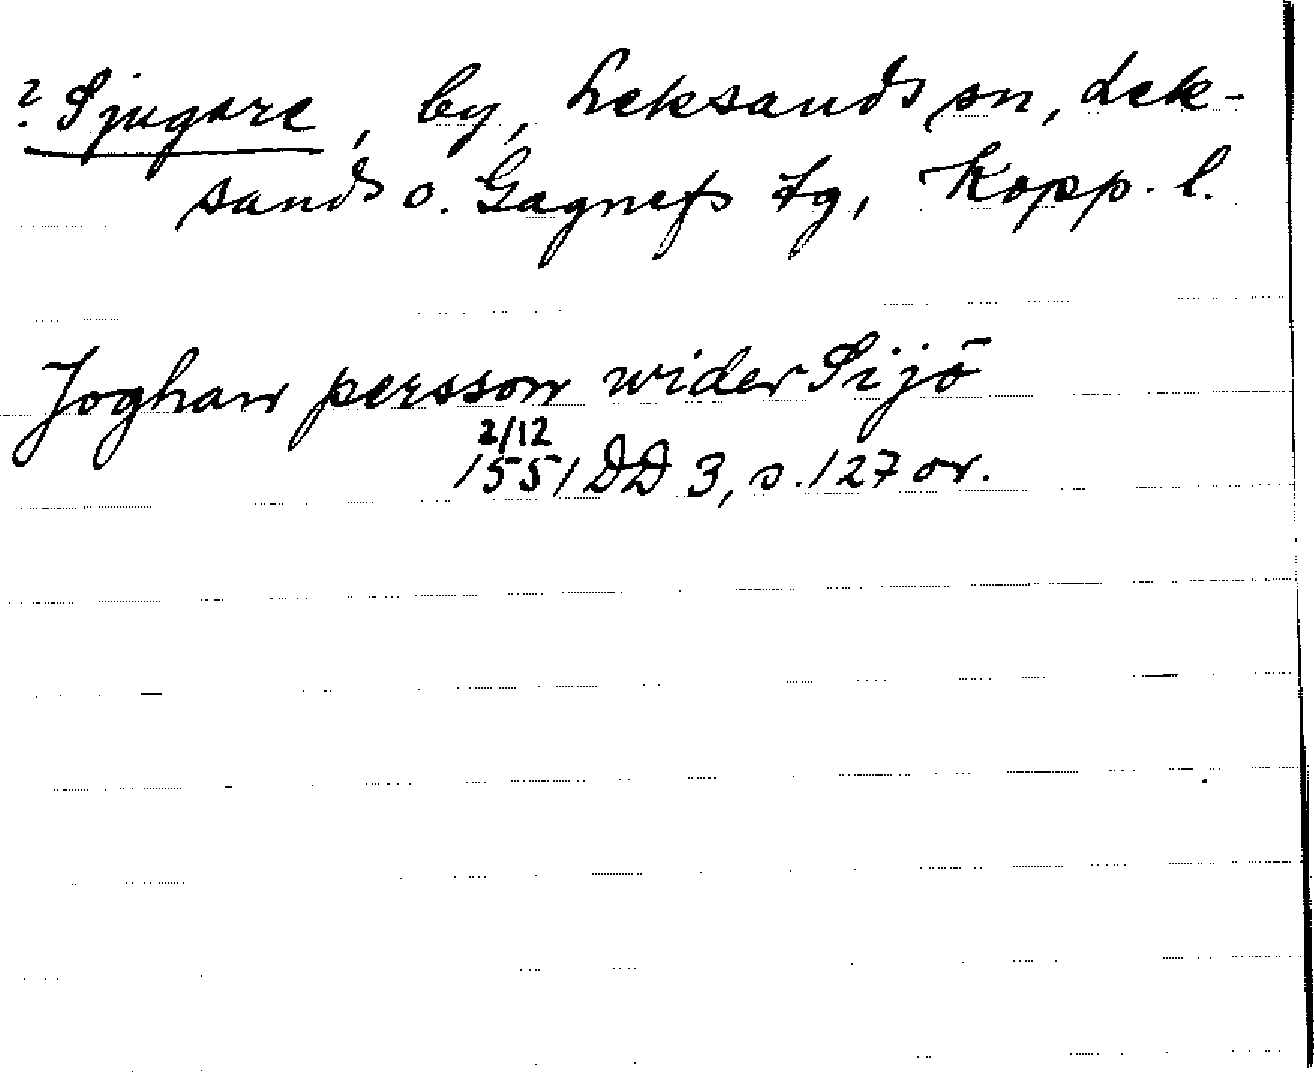 ? Sjugare, by, Leksands sn, Lek-
sands o. Gagnefs tg, Kopp. l.
Joghan persson wider Sijö
2/12
1551 DD 3, s. 127 or.